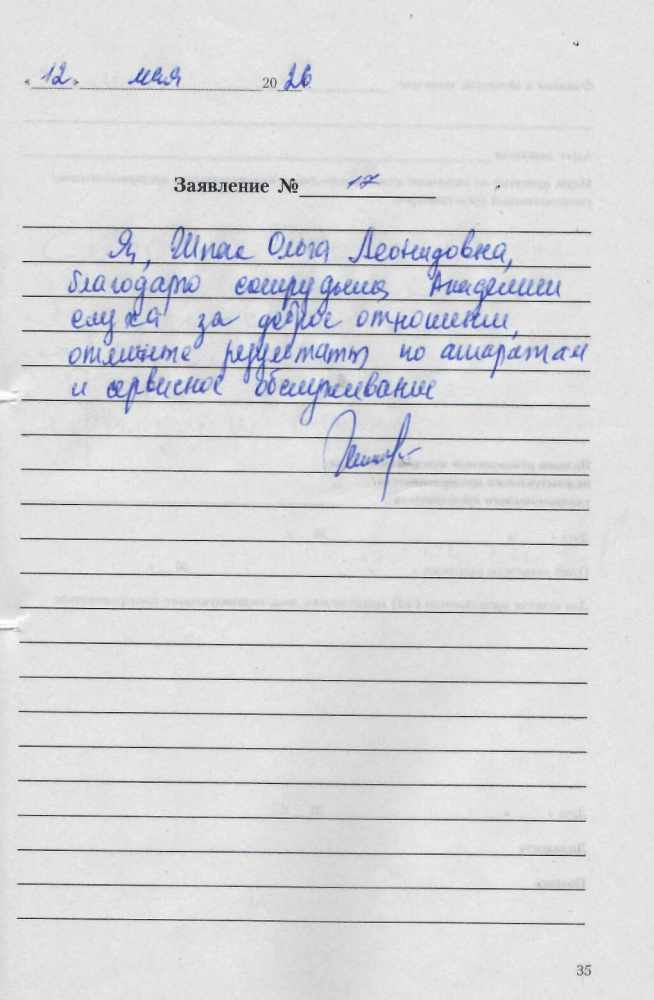 « 12 » мая 20 26
Заявление № 17
Я, Шпак Ольга Леонидовна,
благодарю сотрудниц Академии
слуха за доброе отношение,
отличные результаты по аппаратам
и сервисное обслуживание
35